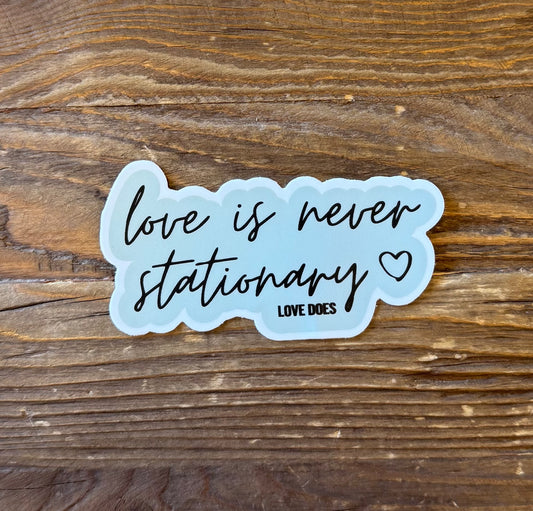 love is never
stationary
LOVE DOES